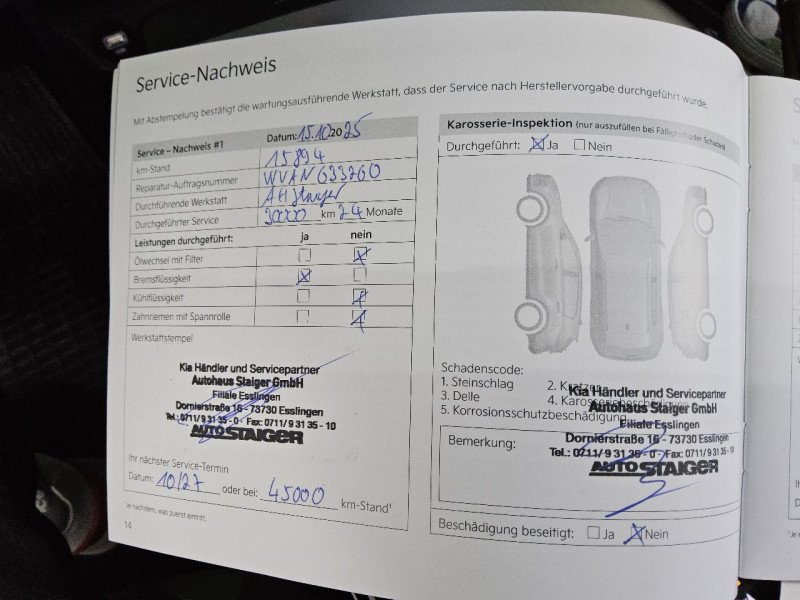 Service-Nachweis
Mit Abstempelung bestätigt die wartungsausführende Werkstatt, dass der Service nach Herstellervorgabe durchgeführt wurde.
Service – Nachweis #1 Datum: 15.10.2025
km-Stand 15894
Reparatur-Auftragsnummer WVAN633260
Durchführende Werkstatt AH Staiger
Durchgeführter Service 30000 km 24 Monate
Leistungen durchgeführt: ja nein
Ölwechsel mit Filter
Bremsflüssigkeit
Kühlflüssigkeit
Zahnriemen mit Spannrolle
Werkstattstempel
Kia Händler und Servicepartner
Autohaus Staiger GmbH
Filiale Esslingen
Dornierstraße 16 - 73730 Esslingen
Tel.: 0711/9 31 35 - 0 · Fax: 0711/9 31 35 - 10
AUTO STAIGER
Ihr nächster Service-Termin
Datum: 10/27 oder bei: 45000 km-Stand¹
¹ Je nachdem, was zuerst eintritt.
14
Karosserie-Inspektion (nur auszufüllen bei Fälligkeit oder Schäden)
Durchgeführt: Ja Nein
Schadenscode:
1. Steinschlag 2. Kratzer
3. Delle 4. Karosseriebeschädigung
5. Korrosionsschutzbeschädigung
Bemerkung:
Kia Händler und Servicepartner
Autohaus Staiger GmbH
Filiale Esslingen
Dornierstraße 16 - 73730 Esslingen
Tel.: 0711/9 31 35 - 0 · Fax: 0711/9 31 35 - 10
AUTO STAIGER
Beschädigung beseitigt: Ja Nein